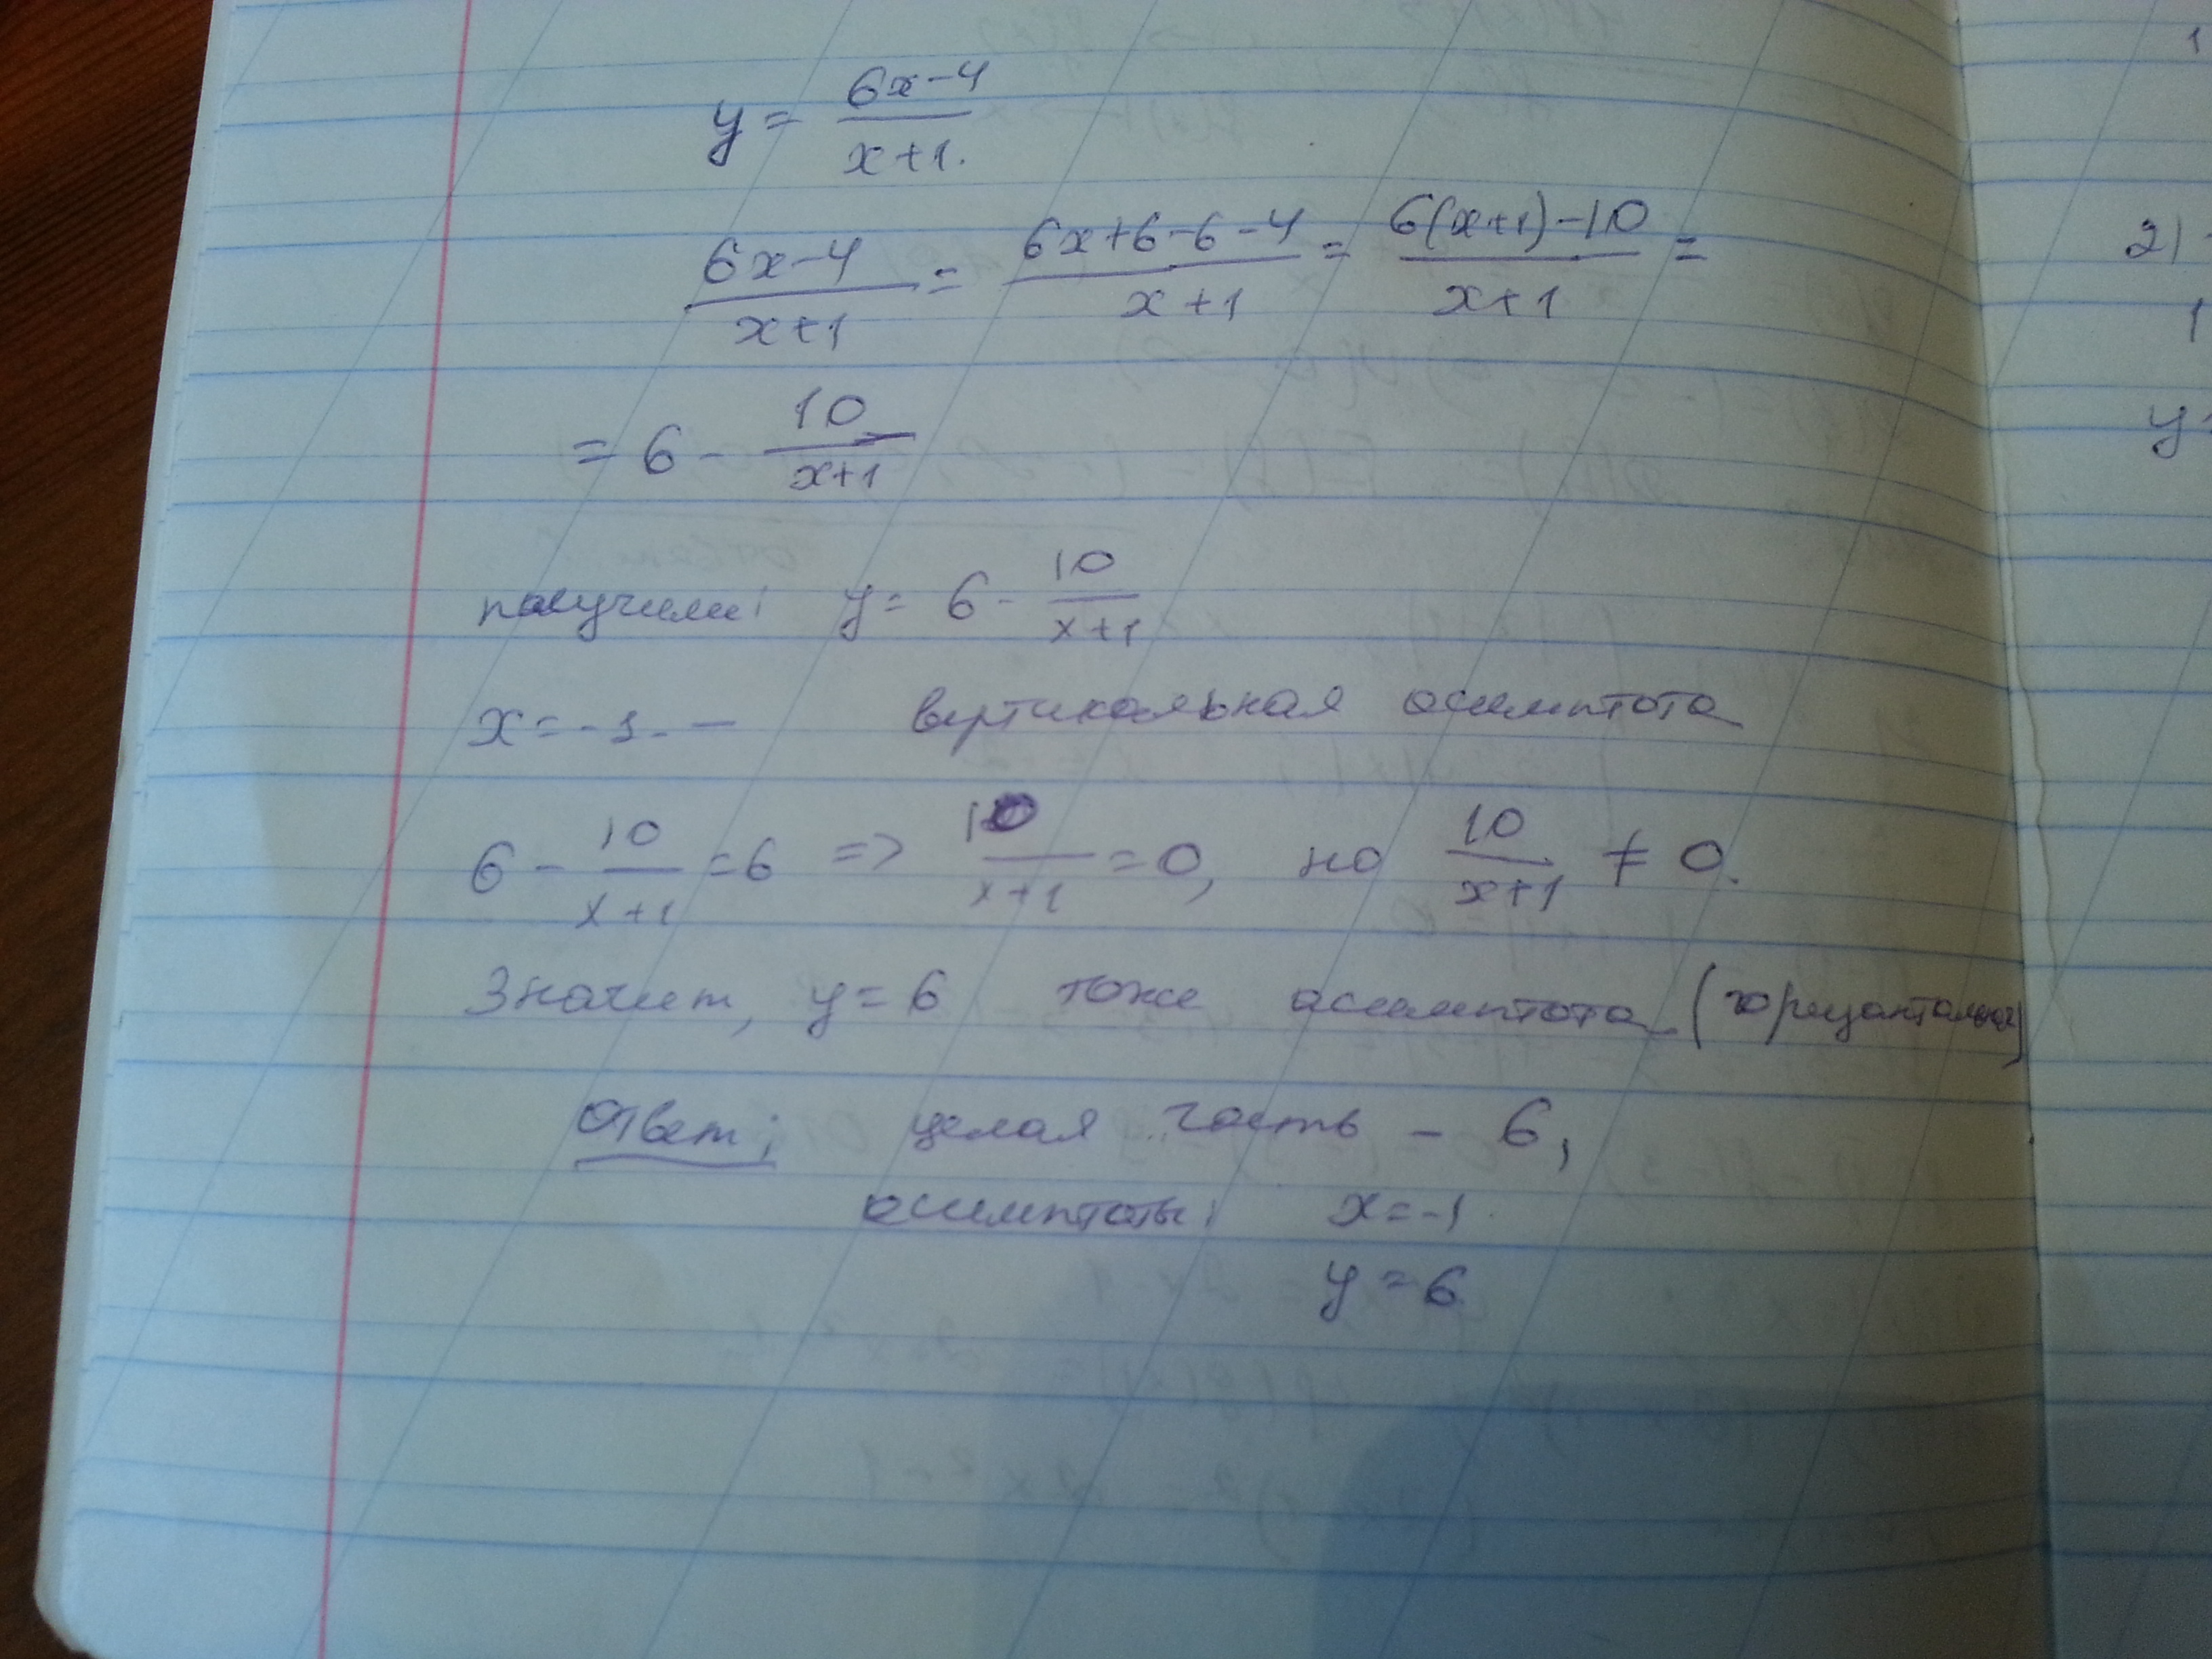 y = (6x-4)/(x+1).
(6x-4)/(x+1) = (6x+6-6-4)/(x+1) = (6(x+1)-10)/(x+1) =
= 6 - 10/(x+1)
получили: y = 6 - 10/(x+1)
x = -1. — вертикальная асимптота
6 - 10/(x+1) = 6 => 10/(x+1) = 0, но 10/(x+1) ≠ 0.
Значит, y = 6 тоже асимптота (горизонтальная)
Ответ: целая часть - 6,
асимптоты: x = -1.
y = 6
1
2)
1
y=